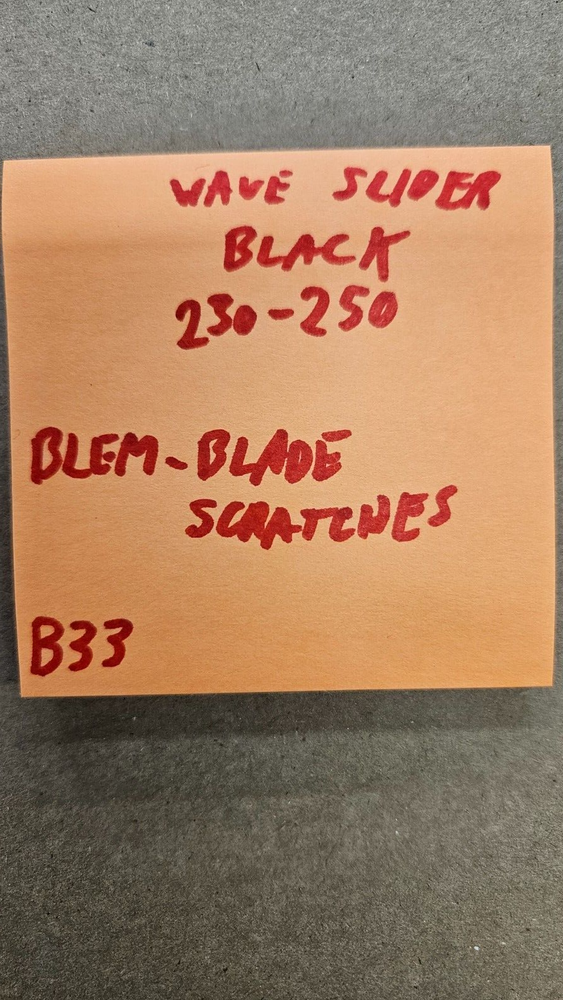 WAVE SLIDER
BLACK
230-250
BLEM-BLADE
SCRATCHES
B33